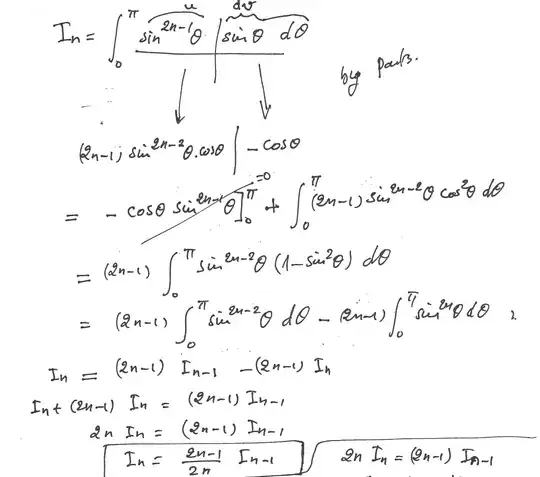 u dv
Iₙ = ∫₀^π sin²ⁿ⁻¹θ | sinθ dθ
by parts.
(2n-1) sin²ⁿ⁻²θ.cosθ | -cosθ
= - cosθ sin²ⁿ⁻¹θ]₀^π =0 + ∫₀^π (2n-1) sin²ⁿ⁻²θ cos²θ dθ
= (2n-1) ∫₀^π sin²ⁿ⁻²θ (1-sin²θ) dθ
= (2n-1) ∫₀^π sin²ⁿ⁻²θ dθ - (2n-1) ∫₀^π sin²ⁿθ dθ
Iₙ = (2n-1) Iₙ₋₁ - (2n-1) Iₙ
Iₙ + (2n-1) Iₙ = (2n-1) Iₙ₋₁
2n Iₙ = (2n-1) Iₙ₋₁
Iₙ = (2n-1)/2n Iₙ₋₁
2n Iₙ = (2n-1) Iₙ₋₁